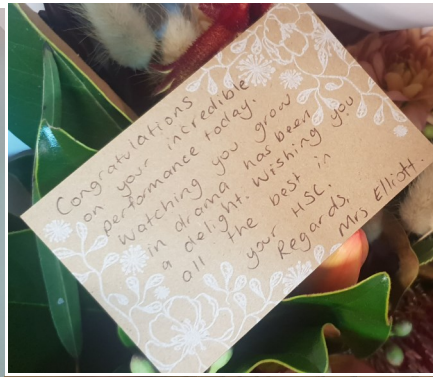 Congratulations
on your incredible
performance today.
Watching you grow
in drama has been
a delight. Wishing you
all the best in
your HSC.
Regards,
Mrs Elliott.